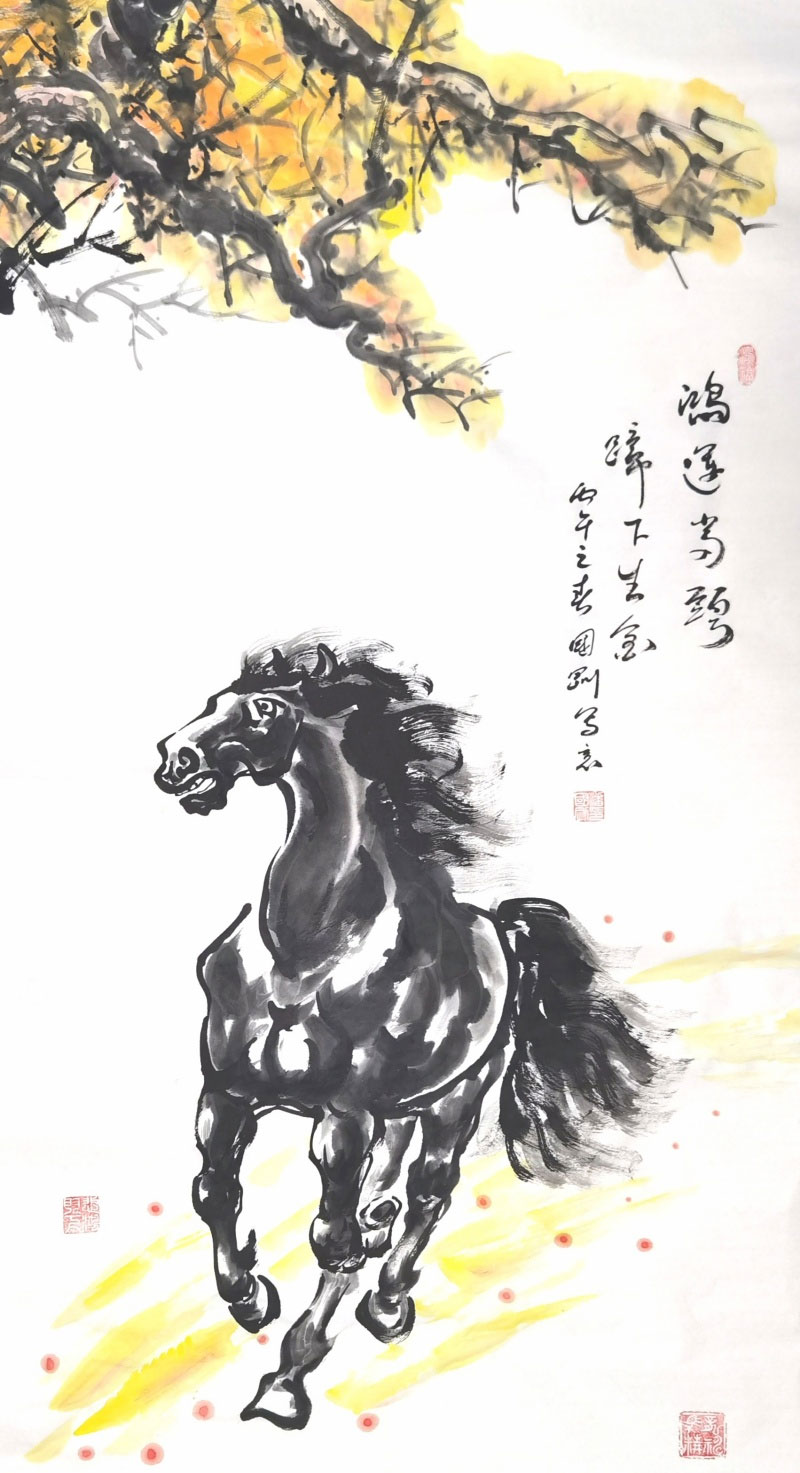 鸿运当头
蹄下生金
丙午之春国刚写意